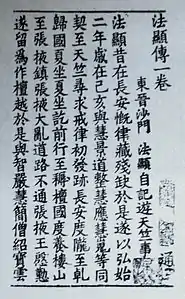 法顯傳一卷
東晉沙門 法顯自記遊天竺事
法顯昔在長安慨律藏殘缺於是遂以弘始
二年歲在己亥與慧景道整慧應慧嵬等同
契至天竺尋求戒律初發跡長安度隴至乾
歸國夏坐夏坐訖前行至耨檀國度養樓山
至張掖鎮張掖大亂道路不通張掖王慇懃
遂留爲作檀越於是與智嚴慧簡僧紹寶雲